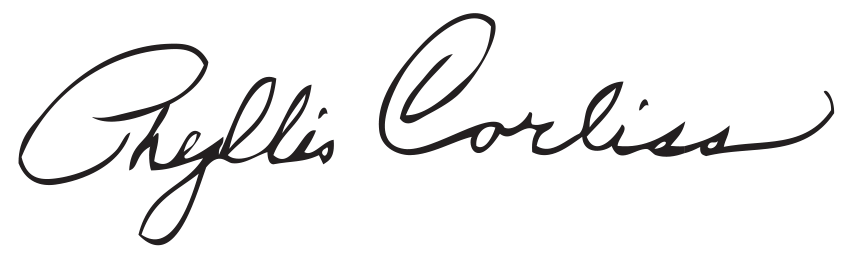 Phyllis Corliss